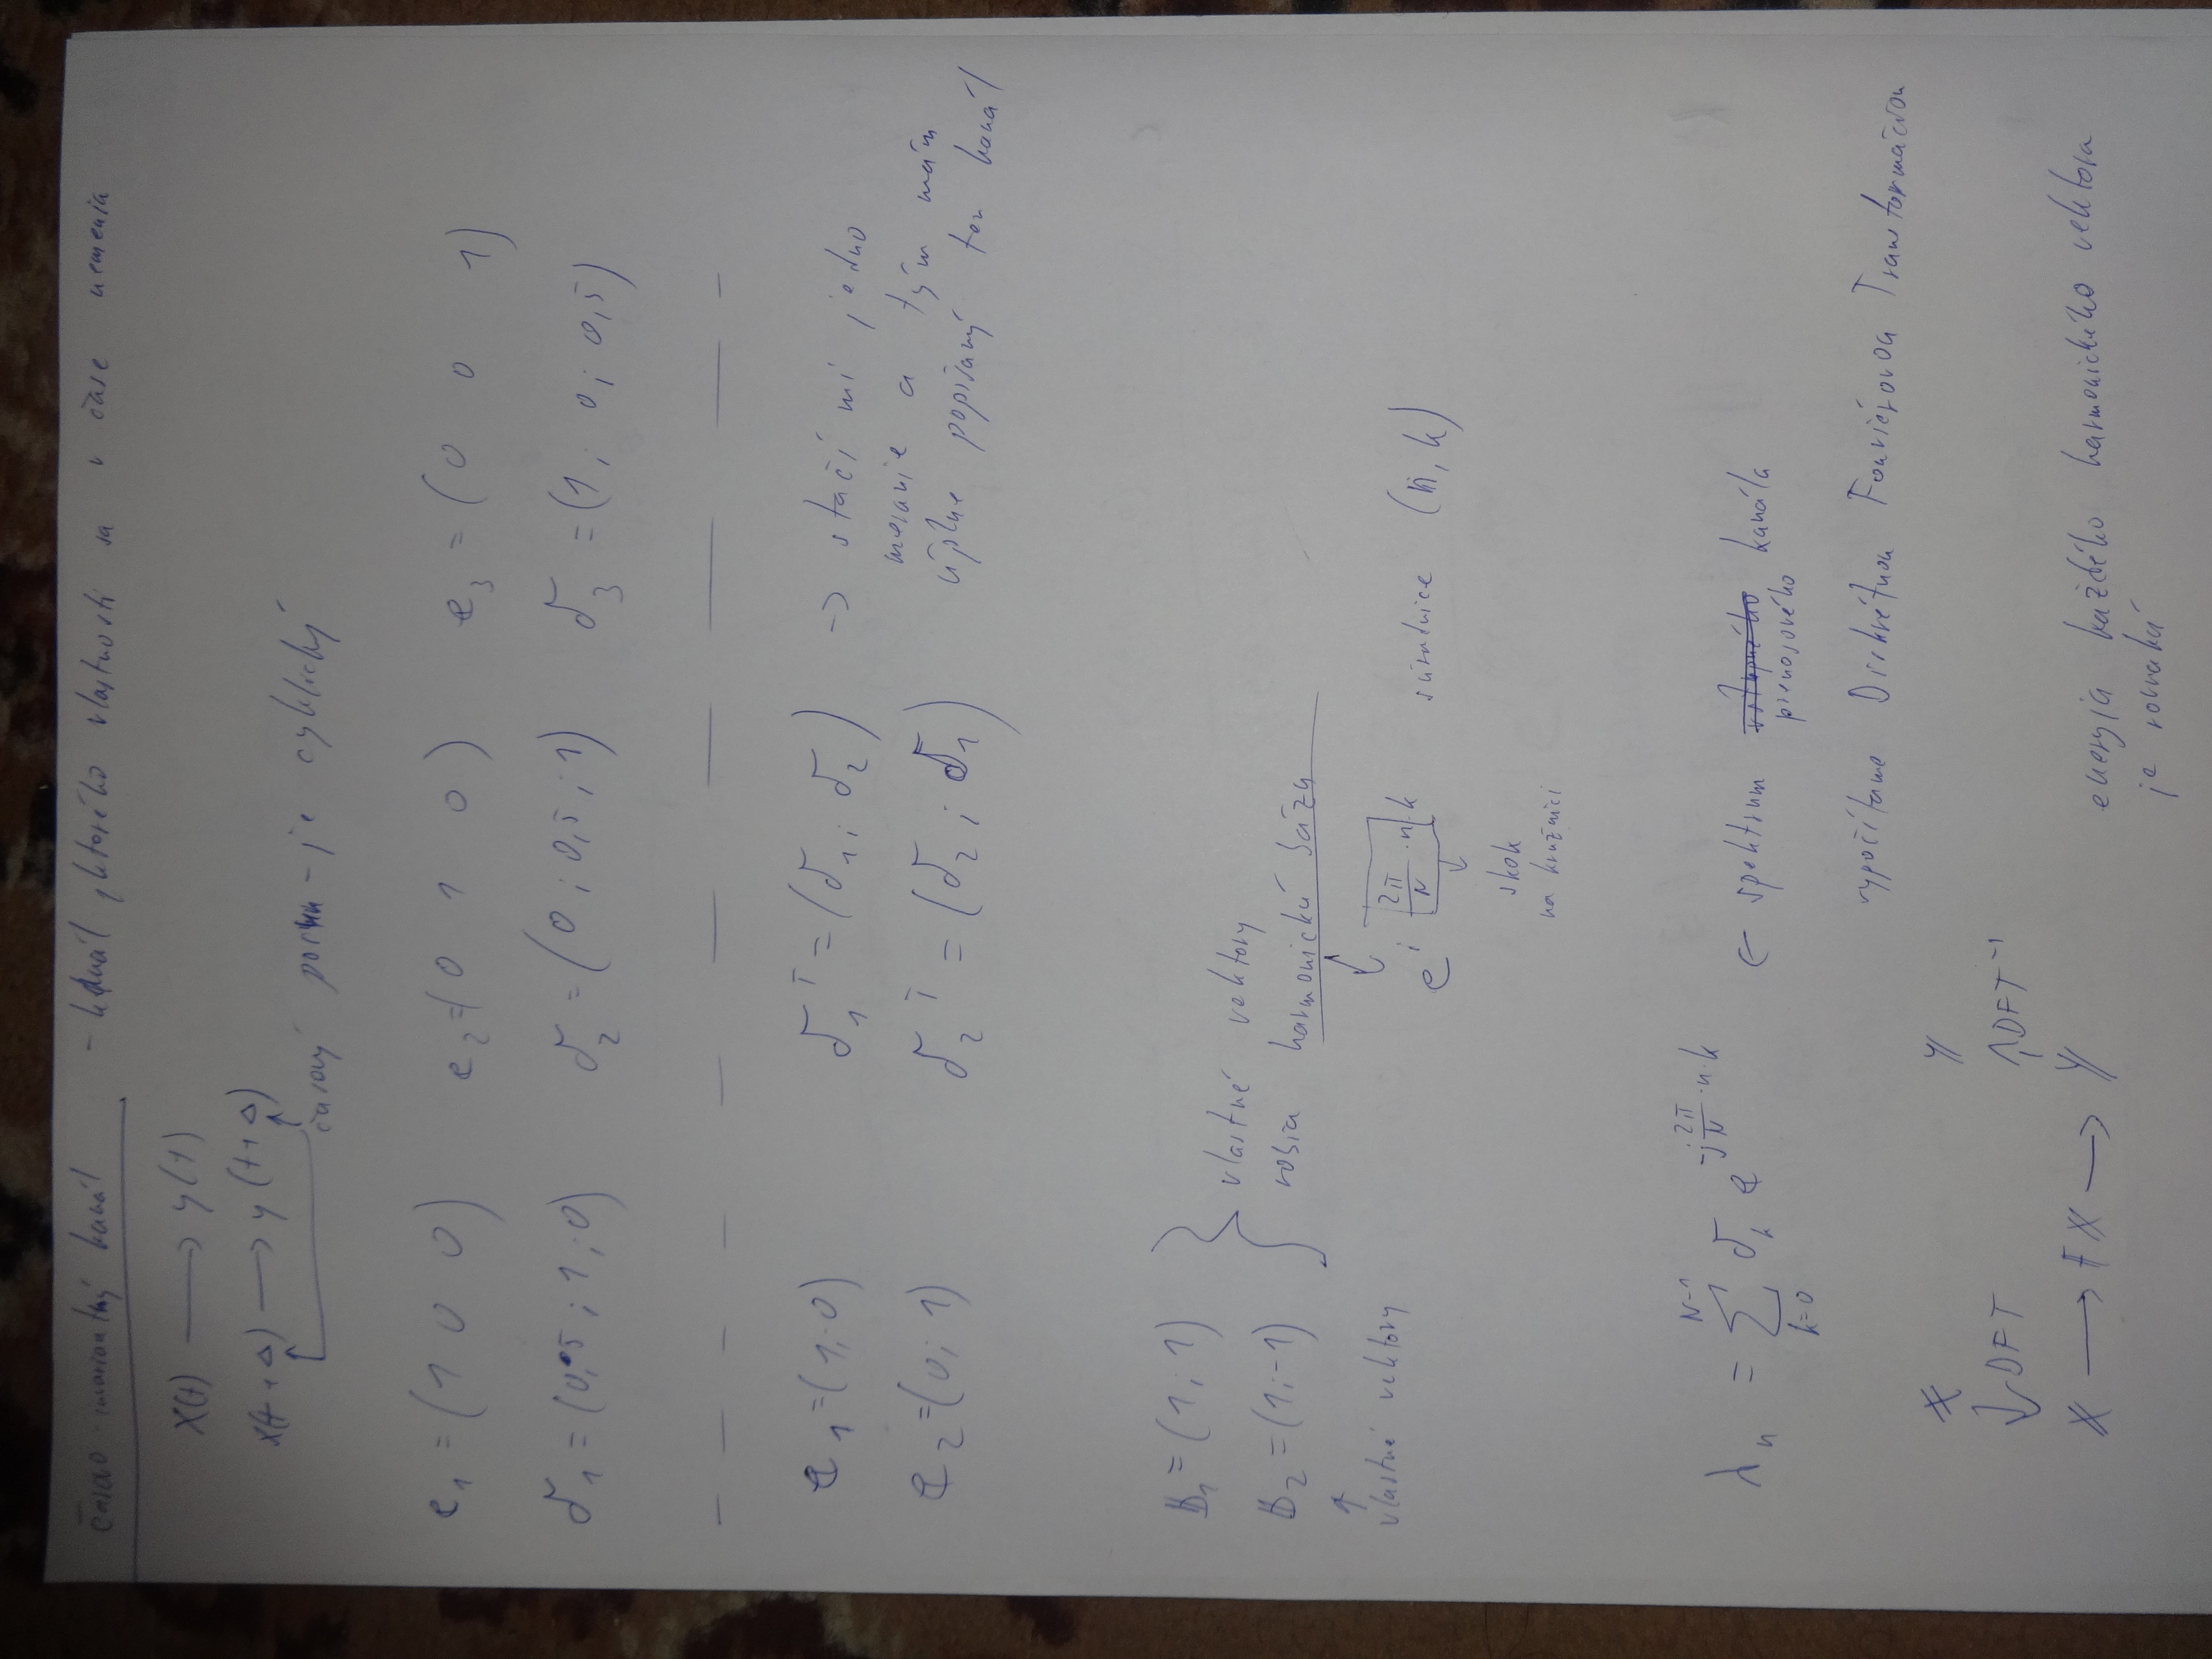 časovo-invariantný kanál - kanál, ktorého vlastnosti sa v čase nemenia
x(t) ⟶ y(t)
x(t+Δ) ⟶ y(t+Δ)
časový posun - je cyklický
e₁ = (1 0 0) e₂ = (0 1 0) e₃ = (0 0 1)
δ₁ = (0,5 ; 1 ; 0) δ₂ = (0 ; 0,5 ; 1) δ₃ = (1 ; 0 ; 0,5)
e₁ = (1; 0) δ₁ᵀ = (δ₁; δ₂) → stačí mi jedno
meranie a tým mám
e₂ = (0; 1) δ₂ᵀ = (δ₂; δ₁)
úplne popísaný ten kanál
B₁ = (1; 1)
vlastné vektory
B₂ = (1; -1)
robia harmonickú bázu
↑
vlastné vektory
e^{j 2π/N · n · k} súradnice (n, k)
skok
na kružnici
λₙ = ∑_{k=0}^{N-1} δₖ e^{-j 2π/N · n · k} ← spektrum kanála
prenosového
vypočítame Diskrétnou Fouriérovou Transformáciou
X Y
↓ DFT ↑ DFT⁻¹
X ⟶ FX ⟶ Y
energia každého harmonického vektora
je rovnaká